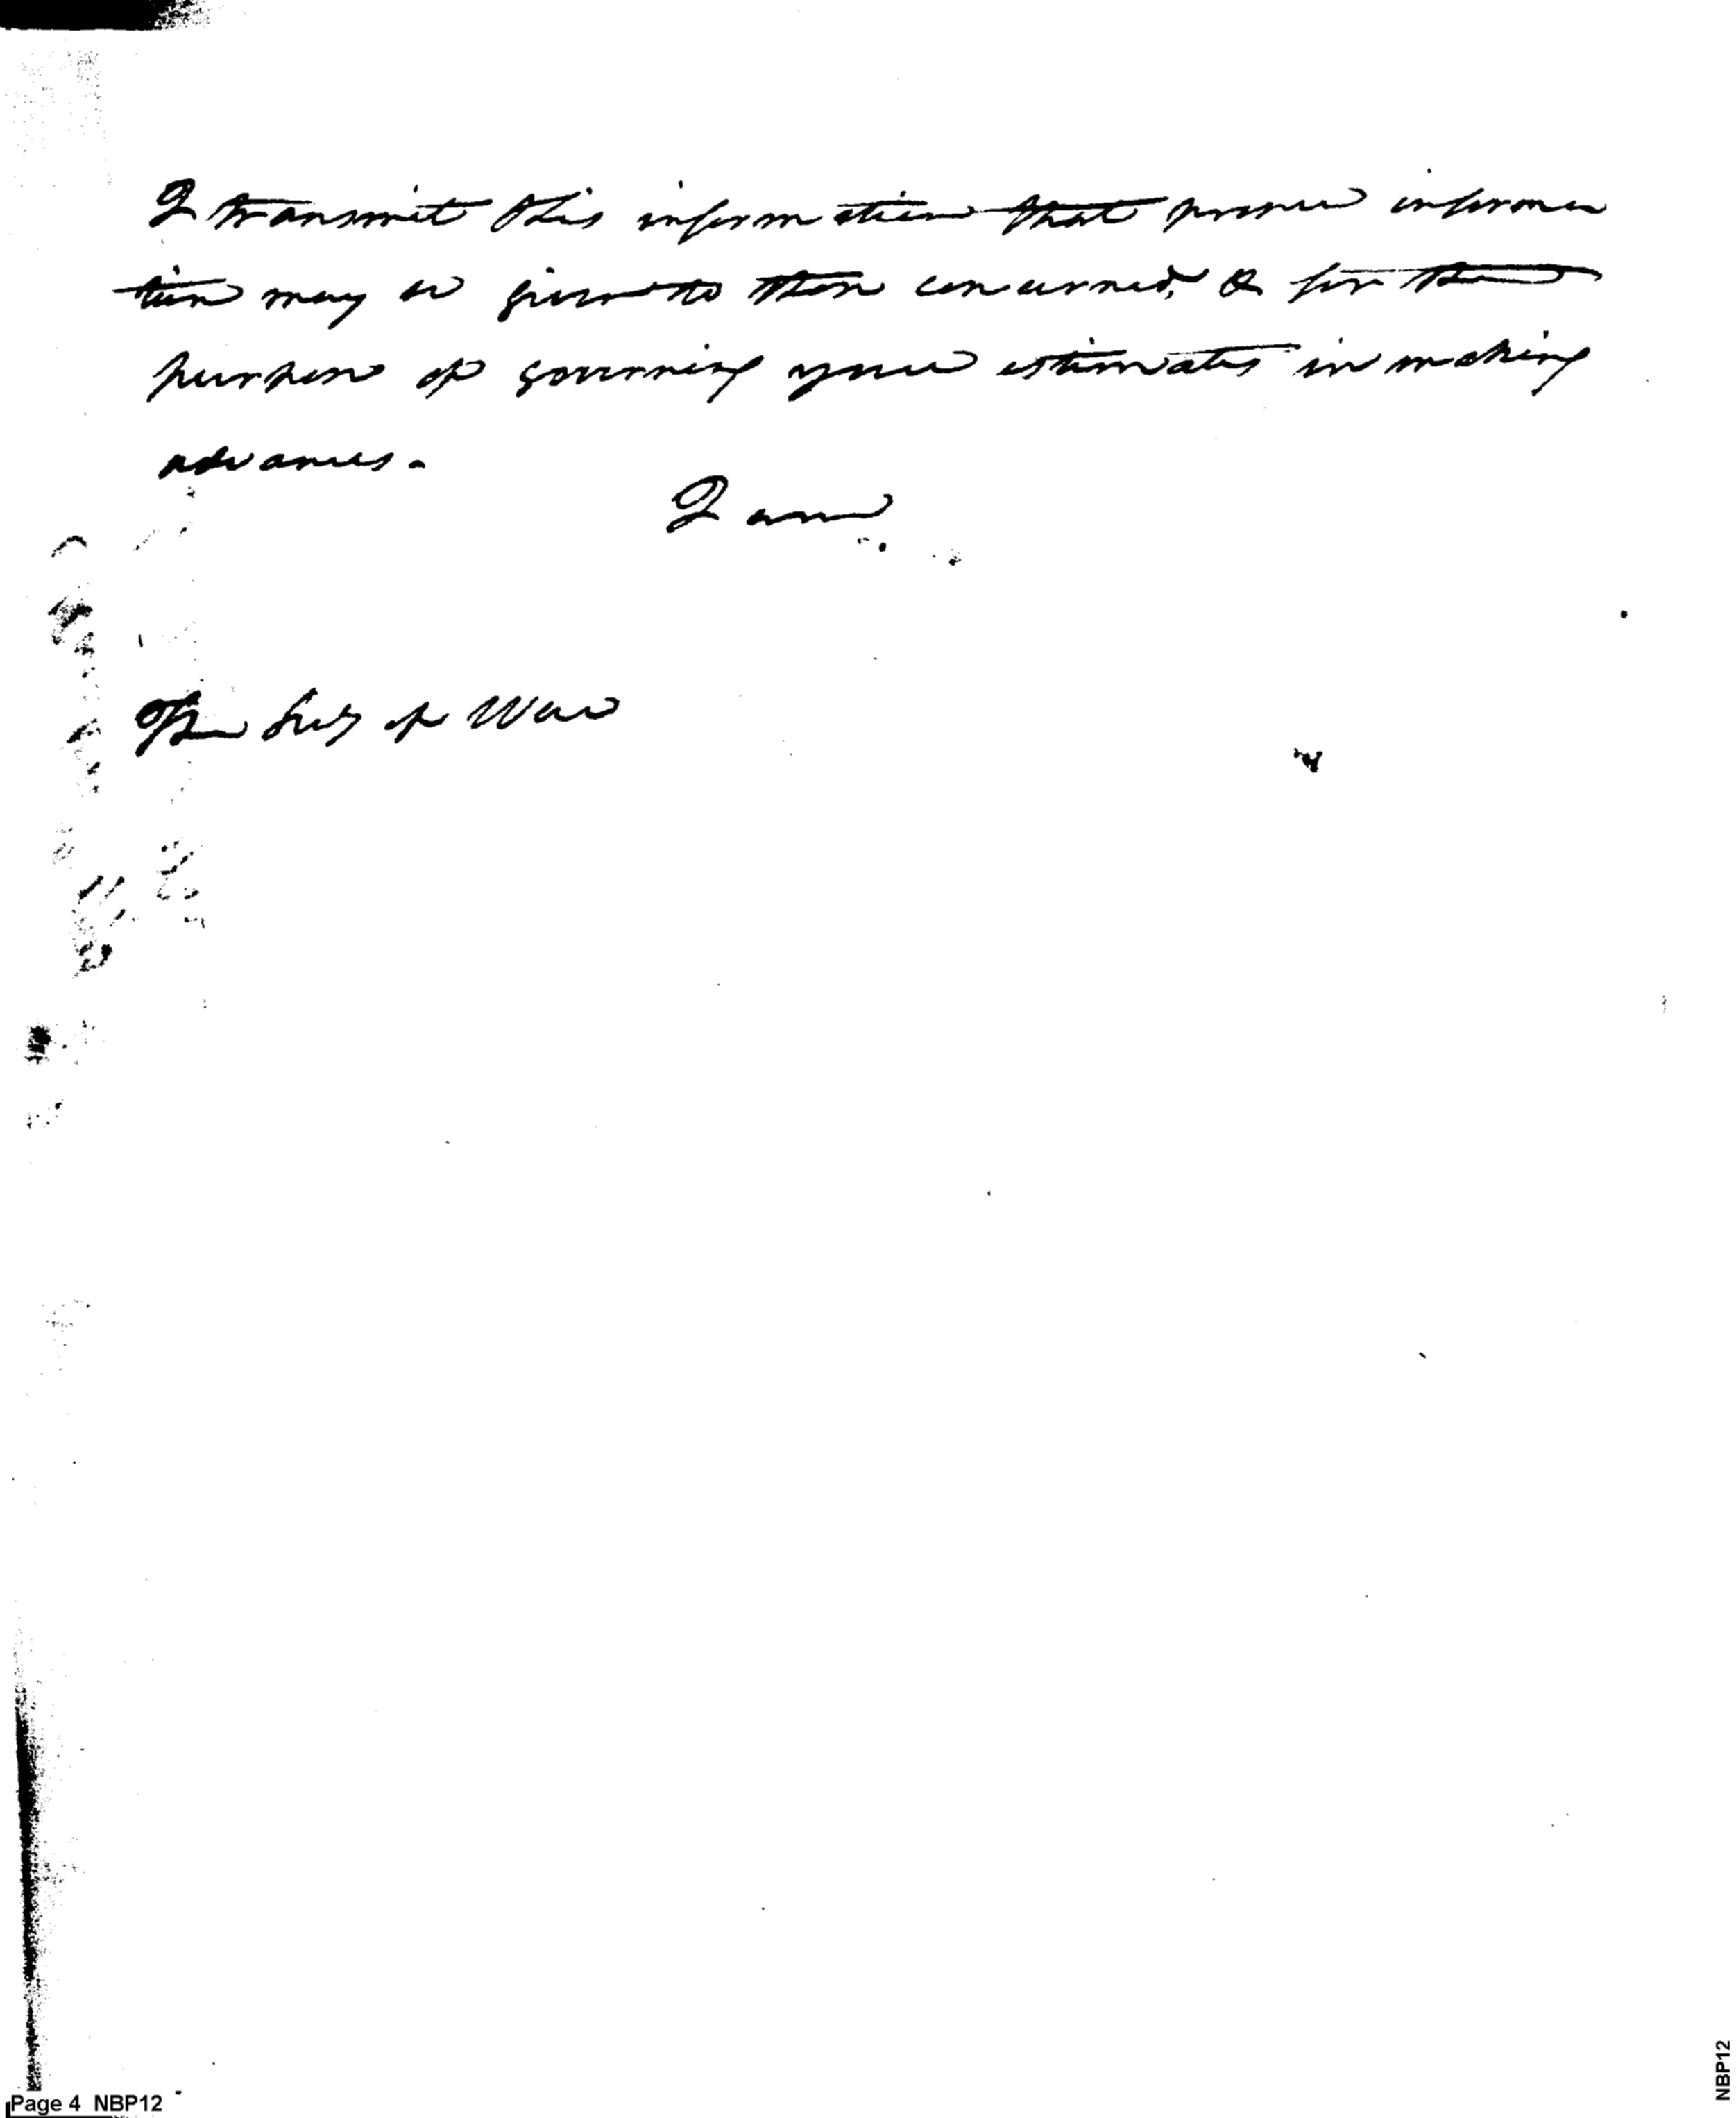 I transmit this information that proper informa
tion may be given to those concerned, & for the
purpose of governing your estimates in making
advances.
I am
The Secy of War
Page 4 NBP12
NBP12